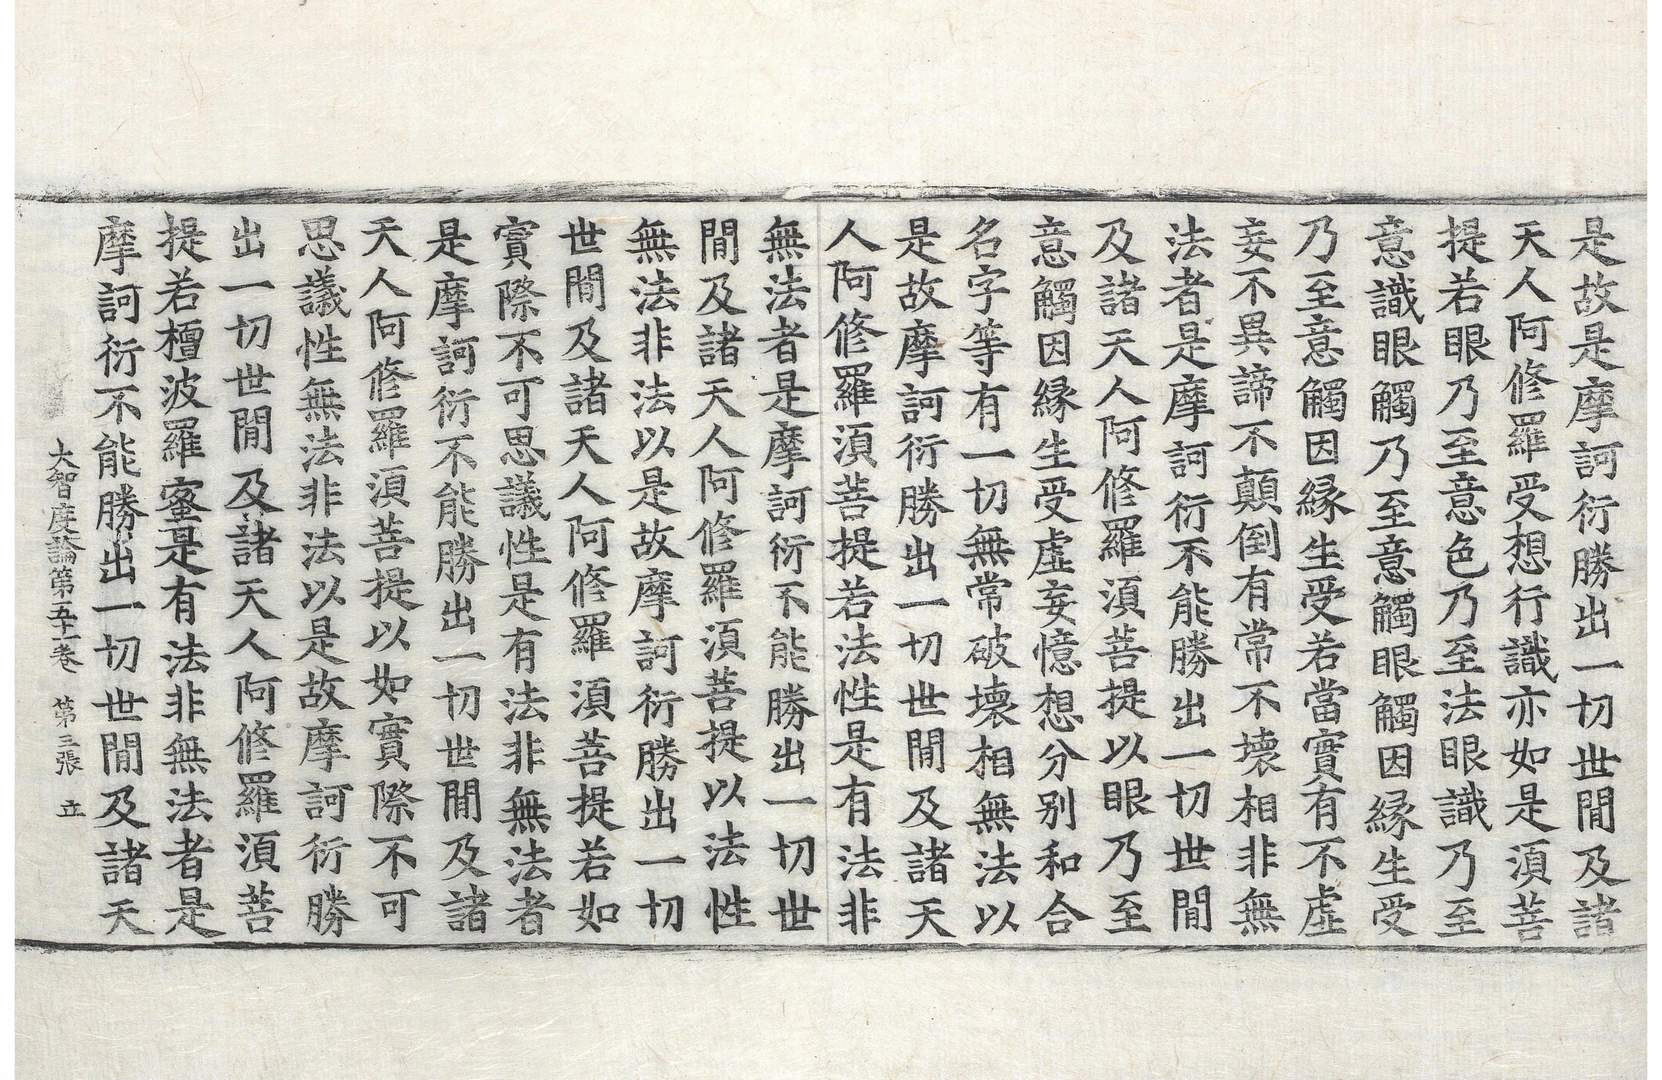 是故是摩訶衍勝出一切世閒及諸
天人阿修羅受想行識亦如是湏菩
提若眼乃至意色乃至法眼識乃至
意識眼觸乃至意觸眼觸因緣生受
乃至意觸因緣生受若當實有不虛
妄不異諦不顛倒有常不壞相非無
法者是摩訶衍不能勝出一切世閒
及諸天人阿修羅湏菩提以眼乃至
意觸因緣生受虛妄憶想分別和合
名字等有一切無常破壞相無法以
是故摩訶衍勝出一切世閒及諸天
人阿修羅湏菩提若法性是有法非
無法者是摩訶衍不能勝出一切世
閒及諸天人阿修羅湏菩提以法性
無法非法以是故摩訶衍勝出一切
世閒及諸天人阿修羅湏菩提若如
實際不可思議性是有法非無法者
是摩訶衍不能勝出一切世閒及諸
天人阿修羅湏菩提以如實際不可
思議性無法非法以是故摩訶衍勝
出一切世閒及諸天人阿修羅湏菩
提若檀波羅蜜是有法非無法者是
摩訶衍不能勝出一切世閒及諸天
大智度論第五十一卷 第三張 立